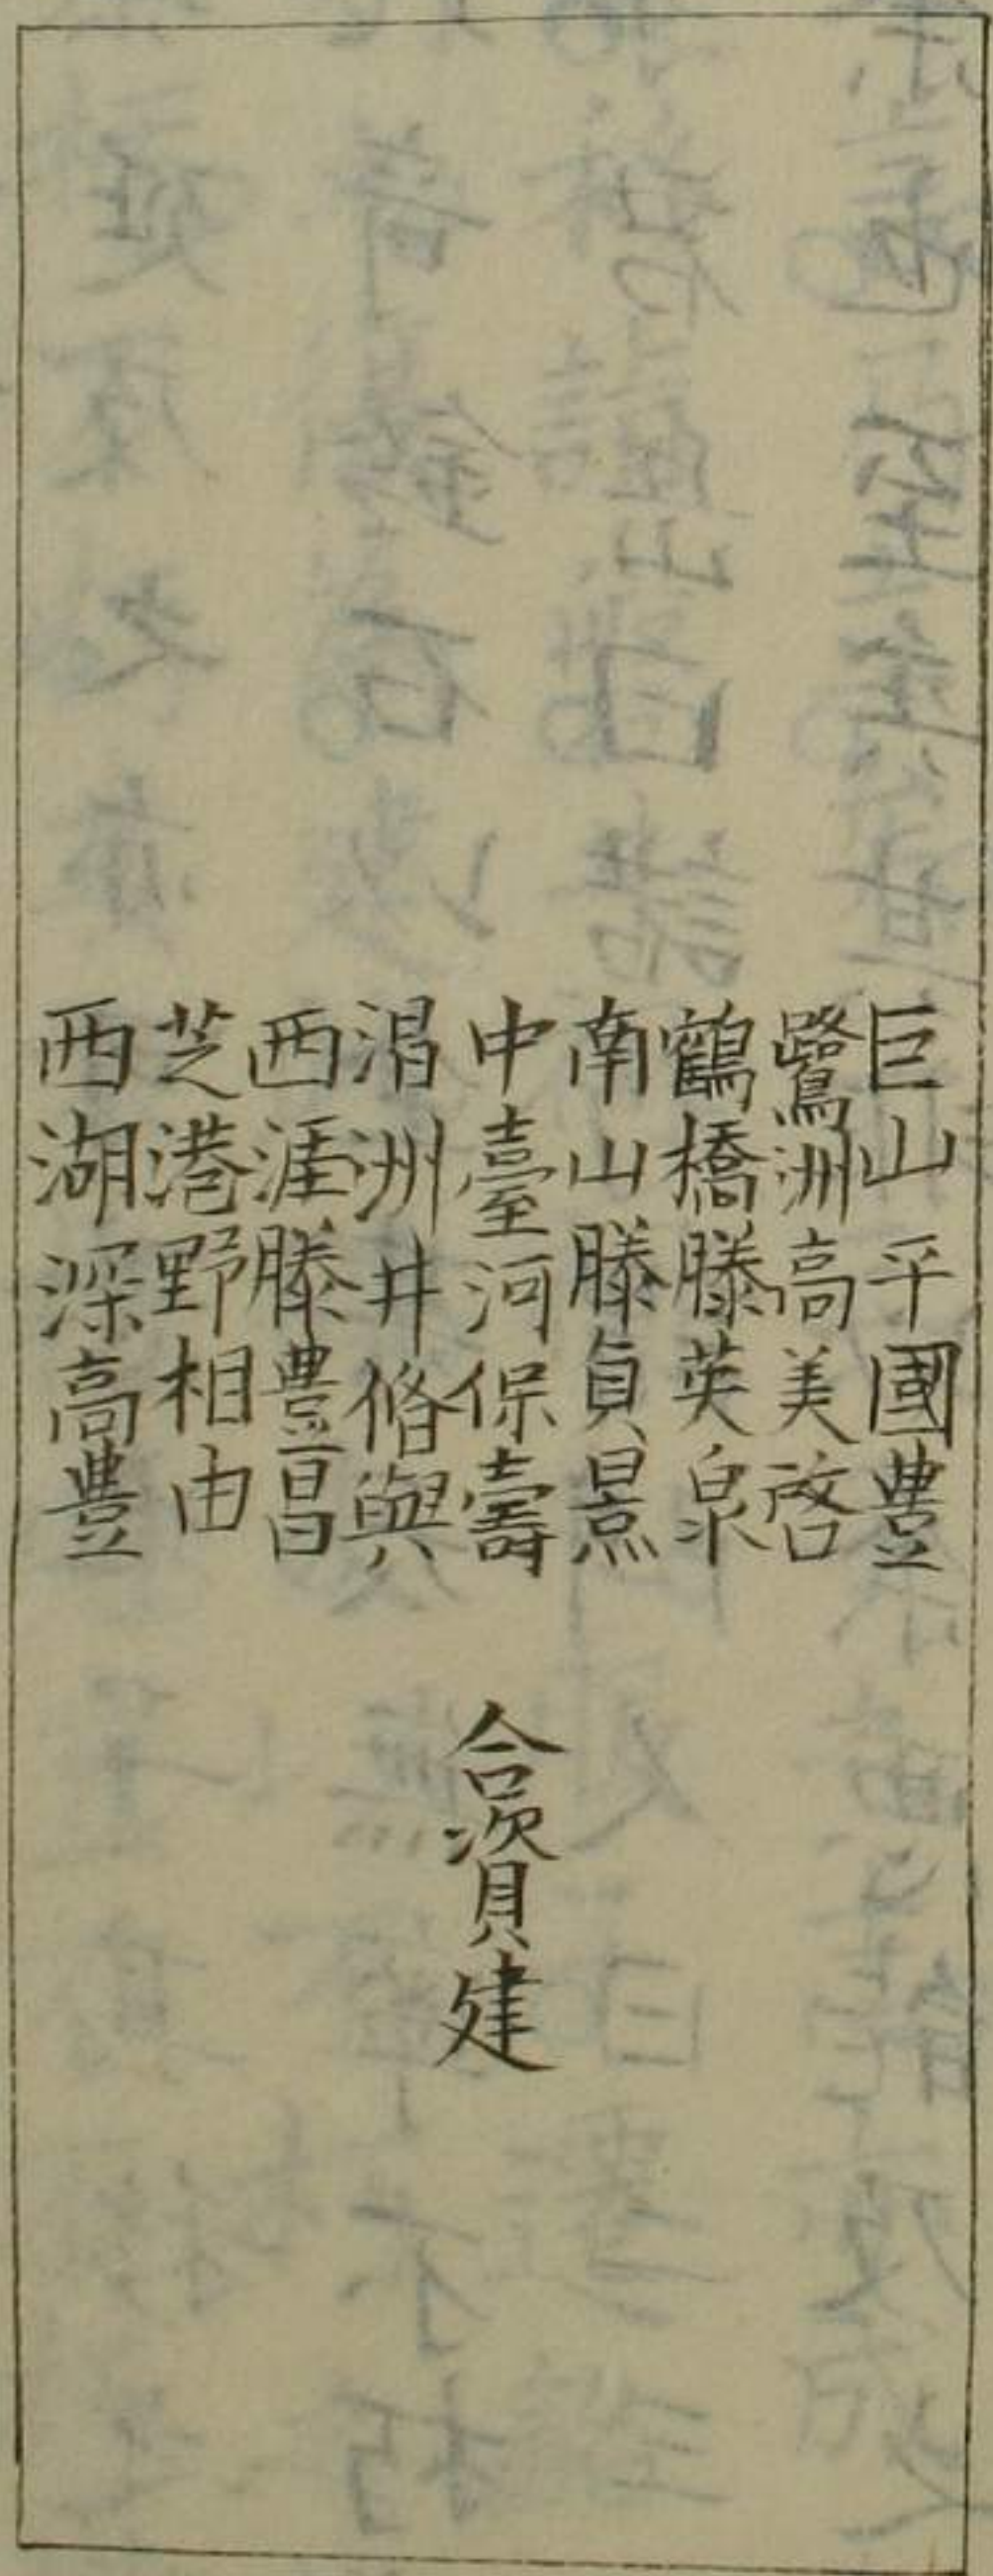 巨山平國豊
鷺洲高美啓
鶴橋滕英泉
南山滕貞景
中臺河保壽
淐洲井脩與
西涯滕豊昌
芝港野相由
西湖深高豊
合資建